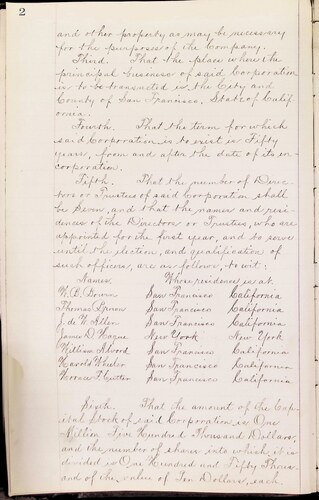 2
and other property as may be necessary
for the purposes of the Company.
Third. That the place where the
principal business of said Corporation
is to be transacted is the City and
County of San Francisco, State of Calif
ornia.
Fourth. That the term for which
said Corporation is to exist is Fifty
years, from and after the date of its in-
corporation.
Fifth. That the number of Direc-
tors or Trustees of said Corporation shall
be Seven, and that the names and resi-
dences of the Directors or Trustees, who are
appointed for the first year, and to serve
until the election, and qualification of
such officers, are as follows, to wit:
Names. Whose residence is at.
W.B. San Francisco California
Thomas San Francisco California
J. de W. Allen San Francisco California
James D. Hague New York New York
William Alvord San Francisco California
Wheeler San Francisco California
Horace San Francisco California
Sixth. That the amount of the Cap-
ital Stock of said Corporation is One
Million Hundred Thousand Dollars,
and the number of shares into which it is
divided is One Hundred and Fifty Thous-
and of the value of Ten Dollars, each.